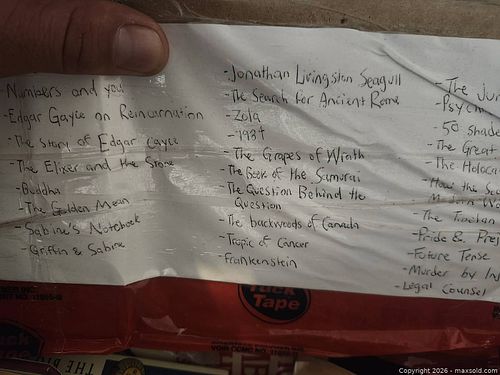 Numbers and you
-Edgar Gayce on Reincarnation
-The story of Edgar cayce
-The Elixer and the Stone
-Buddha
-The Golden Mean
-Sabine's Notebook
-Griffin & Sabine
-Jonathan Livingston Seagull
-The Search For Ancient Rome
-Zola
-1984
-The Grapes of Wrath
-The Book of the Samurai
-The Question Behind the
Question
-The backwoods of Canada
-Tropic of Cancer
-Frankenstein
-The
-Psych
-50 shade
-The Great
-The Holoca
-How the
Modern
-The Tibetan
-Pride & Prej
-Future Tense
-Murder by In
-Legal Counsel
Tuck
Tape
THE
Copyright 2026 - maxsold.com